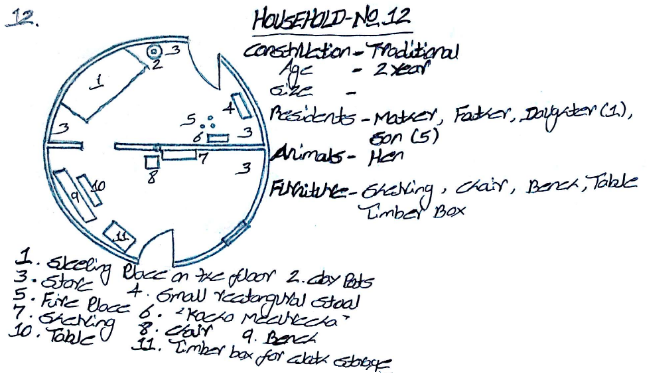 12.
HOUSEHOLD-No. 12
Construction - Traditional
Age - 2 year
Size -
Residents - Mother, Father, Daughter (1),
Son (5)
Animals - Hen
Furniture - Shelving, Chair, Bench, Table
Timber Box
1
2
3
3
4
5
6
3
7
8
3
9
10
11
1. Sleeping Place on the floor 2. clay Pots
3. Store 4. Small rectangular stool
5. Fire Place 6. "Kocho
7. Shelving 8. Chair 9. Bench
10. Table 11. Timber box for cloth storage